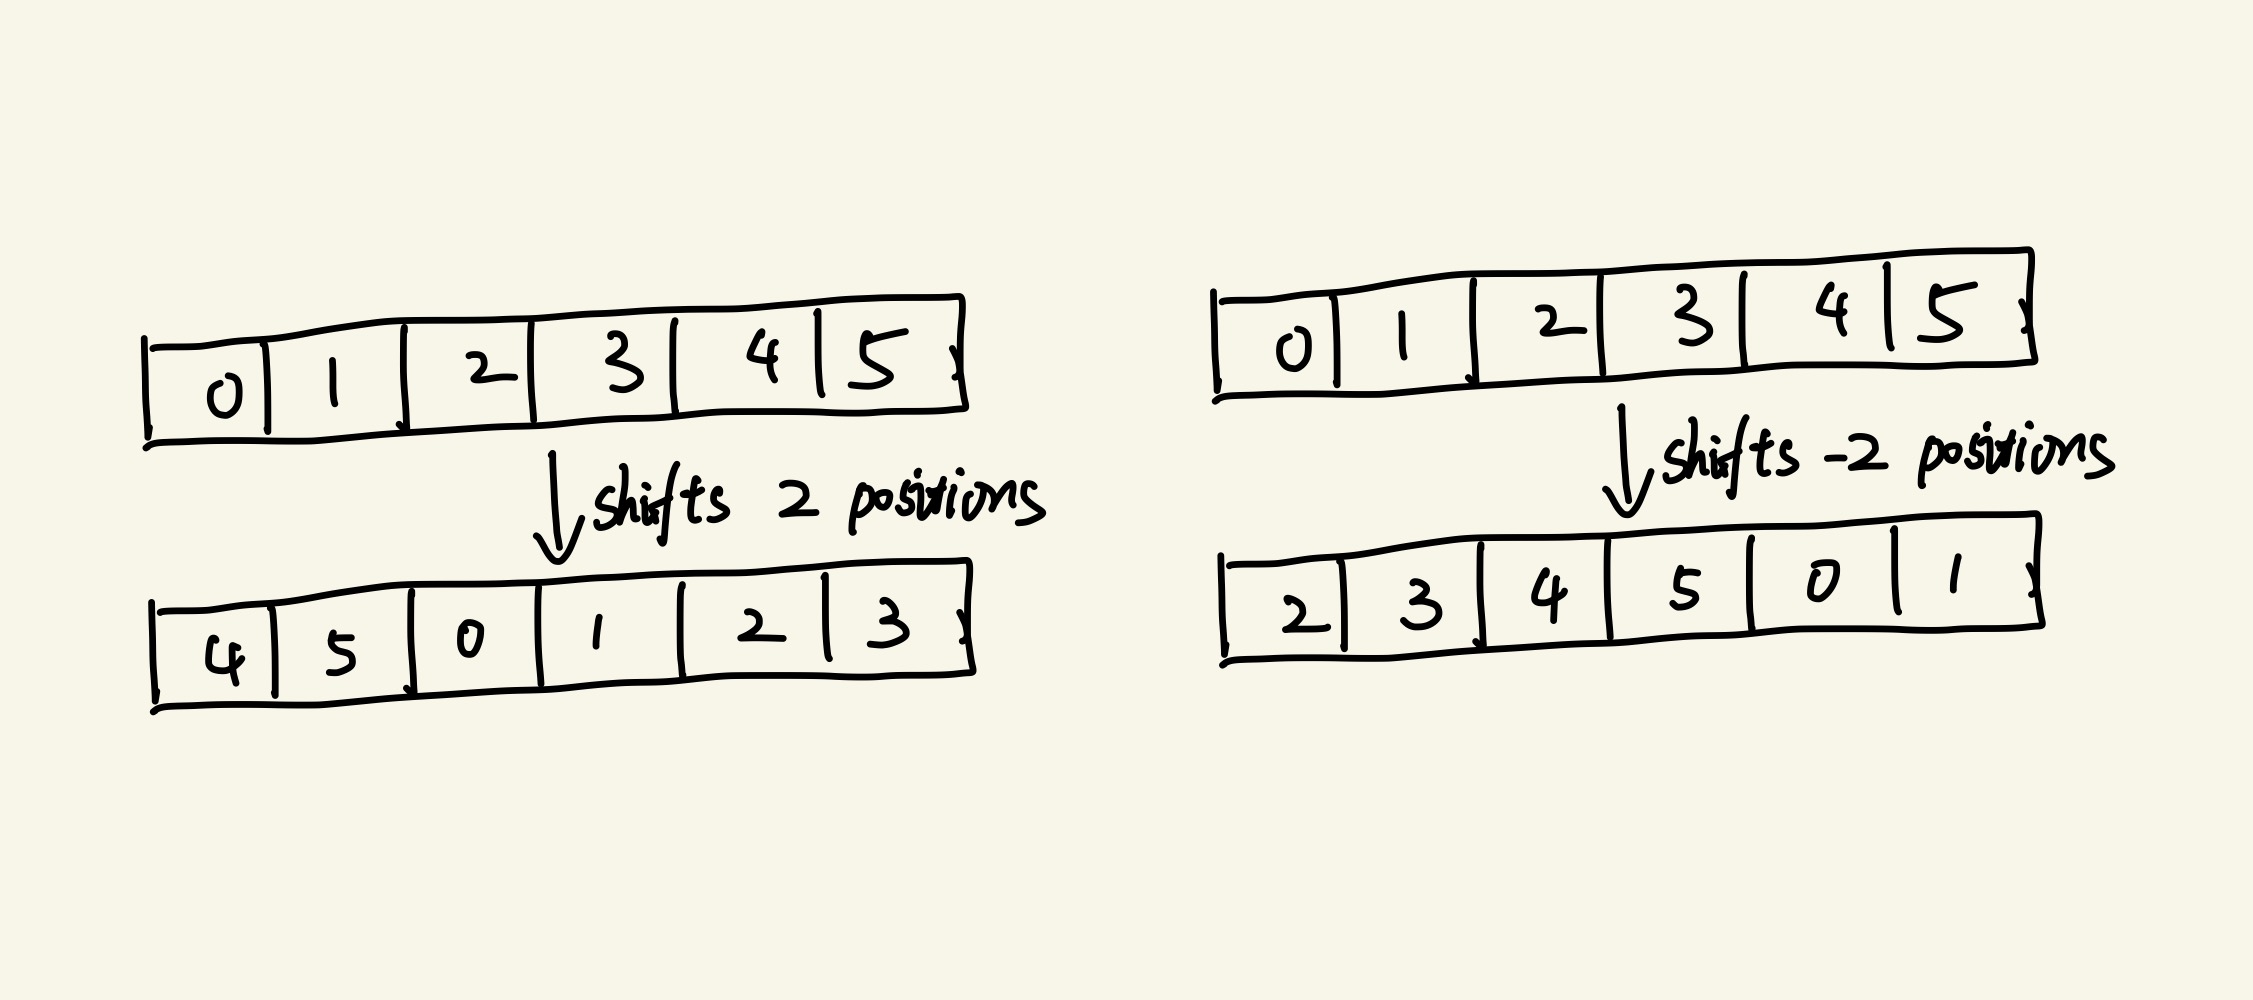 0 1 2 3 4 5
shifts 2 positions
4 5 0 1 2 3
0 1 2 3 4 5
shifts -2 positions
2 3 4 5 0 1